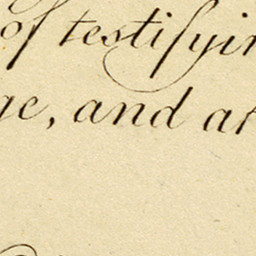 of testifyin
ge, and at